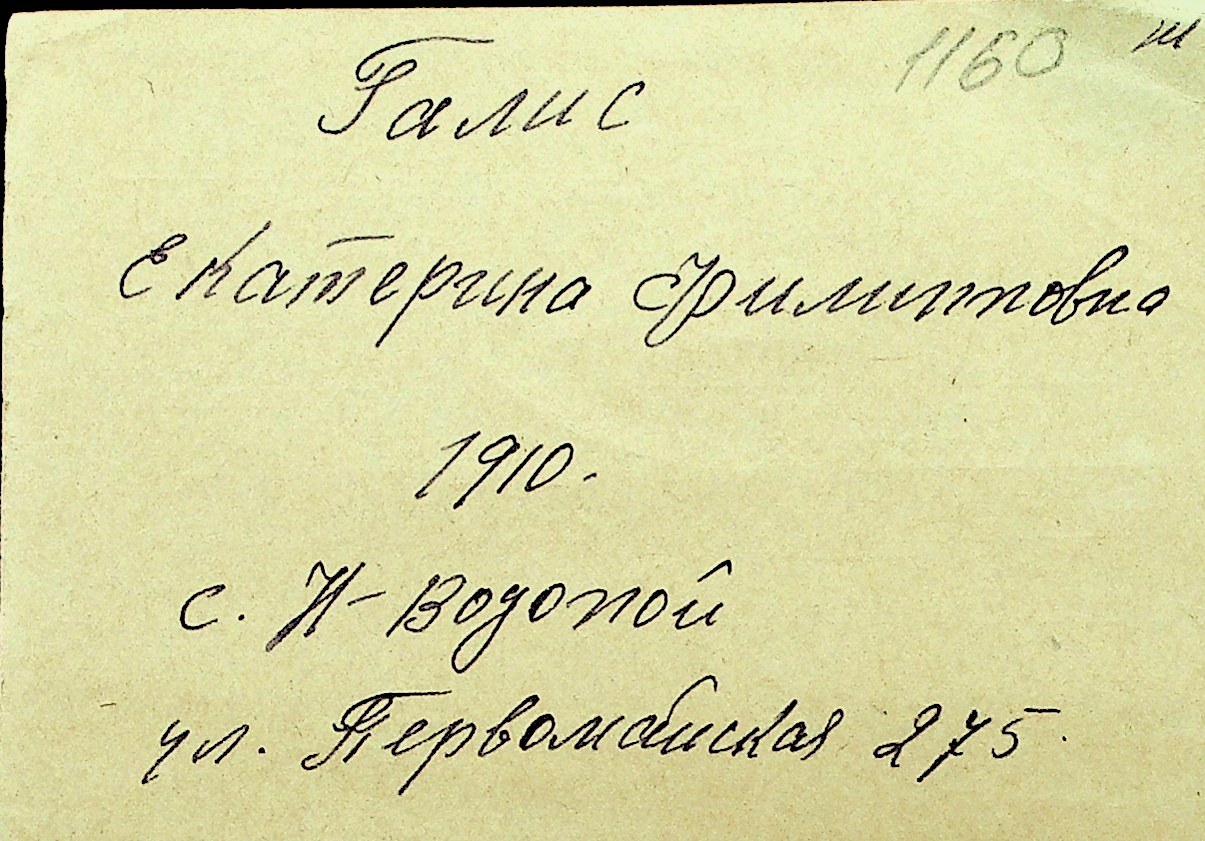 1160 ш
Галис
Екатерина Филипповна
1910.
с. Н-Водопой
ул. Первомайская 275.